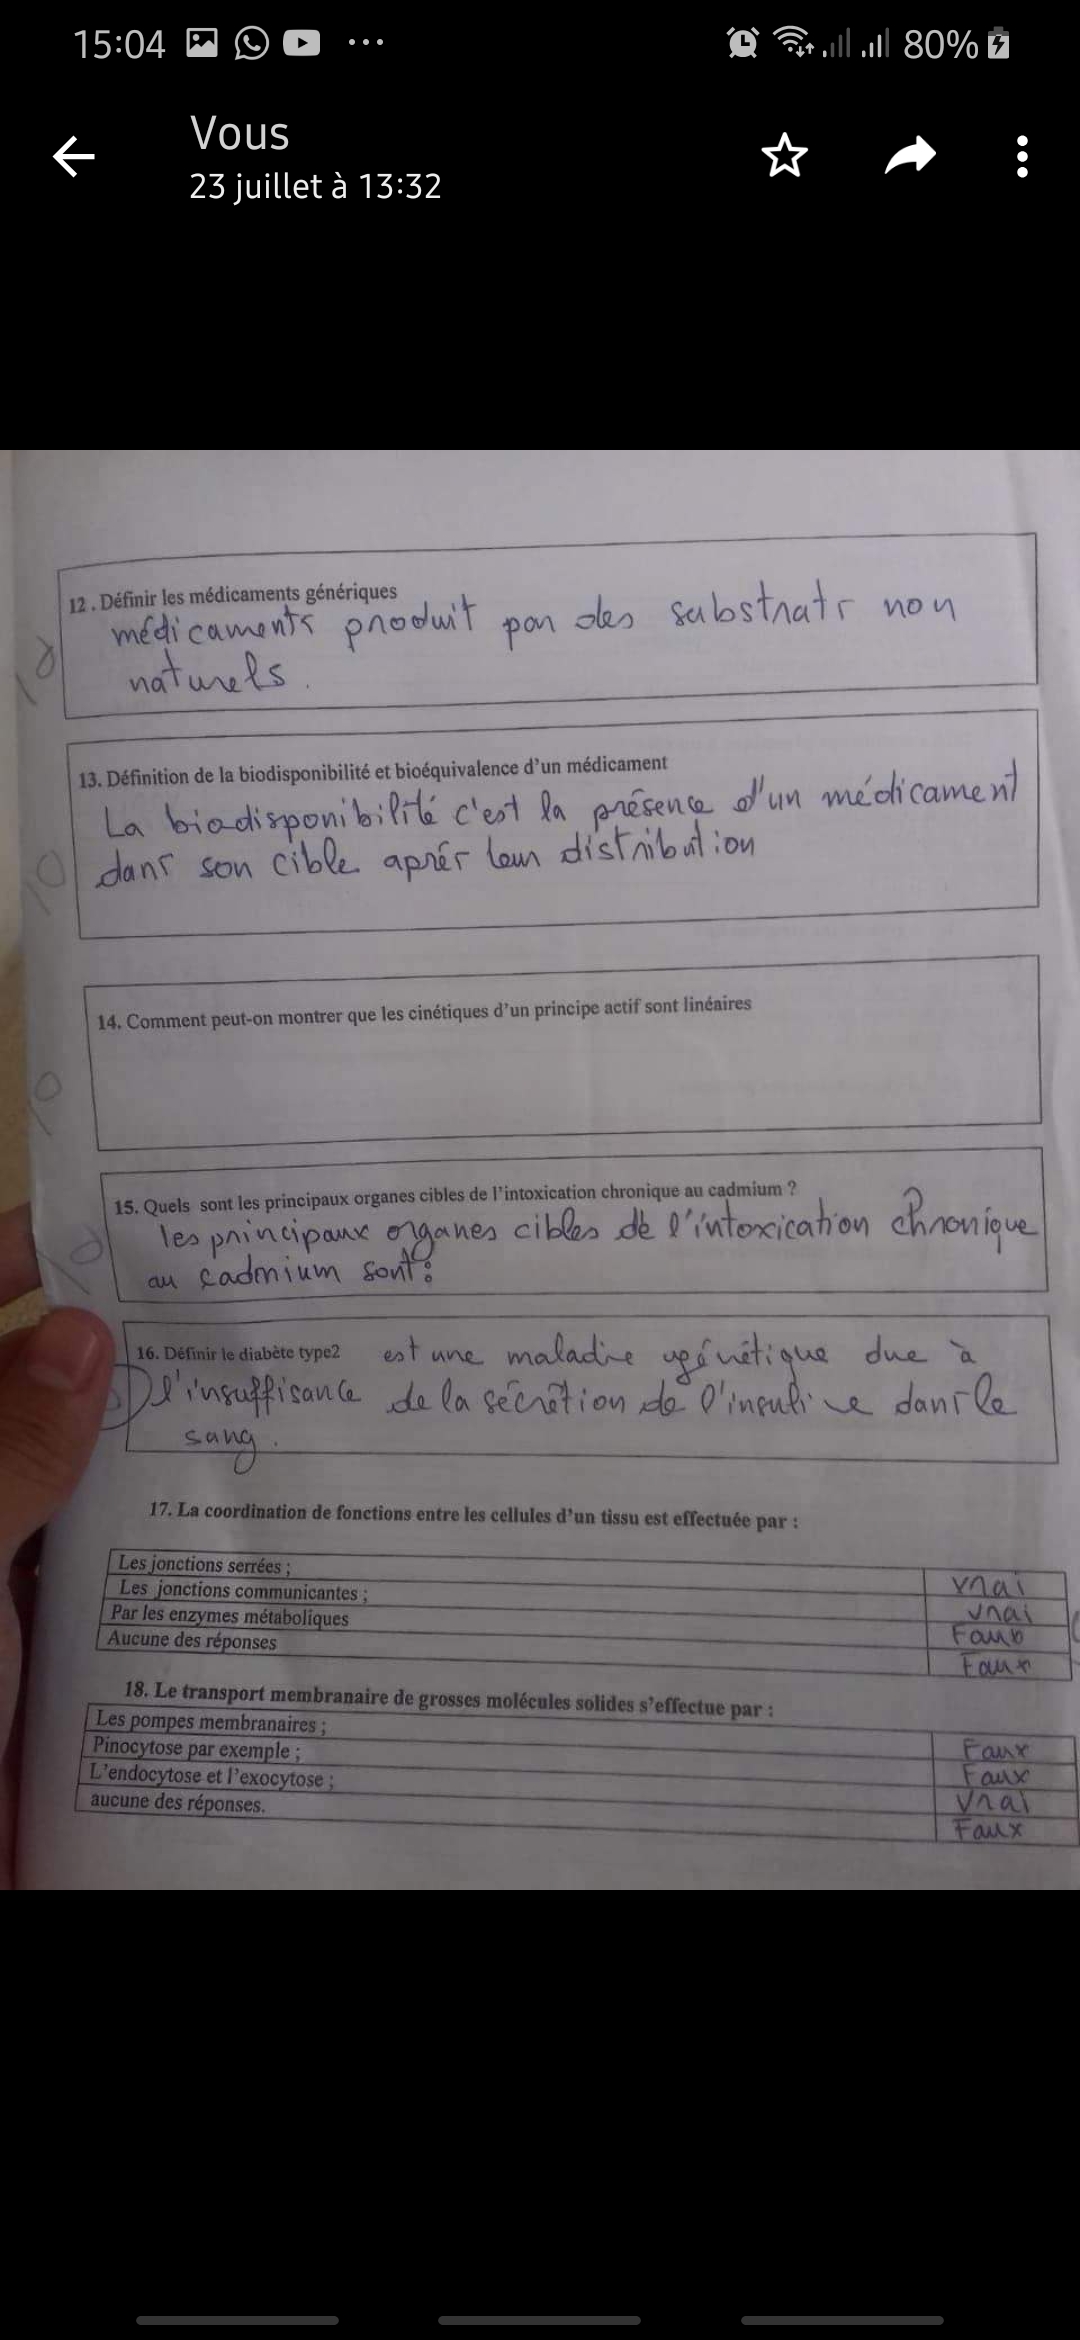 15:04 80%
Vous
23 juillet à 13:32
12. Définir les médicaments génériques
médicaments produit par des substrats non
naturels.
13. Définition de la biodisponibilité et bioéquivalence d'un médicament
La biodisponibilité c'est la présence d'un médicament
dans son cible aprés leur distribution
14. Comment peut-on montrer que les cinétiques d'un principe actif sont linéaires
15. Quels sont les principaux organes cibles de l'intoxication chronique au cadmium ?
les principaux organes cibles de l'intoxication chronique
au cadmium sont:
16. Définir le diabète type2 est une maladie due à
l'insuffisance de la sécrétion de l'insuline dans le
sang.
17. La coordination de fonctions entre les cellules d'un tissu est effectuée par :
Les jonctions serrées ; vrai
Les jonctions communicantes ; vrai
Par les enzymes métaboliques Faux
Aucune des réponses Faux
18. Le transport membranaire de grosses molécules solides s'effectue par :
Les pompes membranaires ; Faux
Pinocytose par exemple ; Faux
L'endocytose et l'exocytose ; vrai
aucune des réponses. Faux